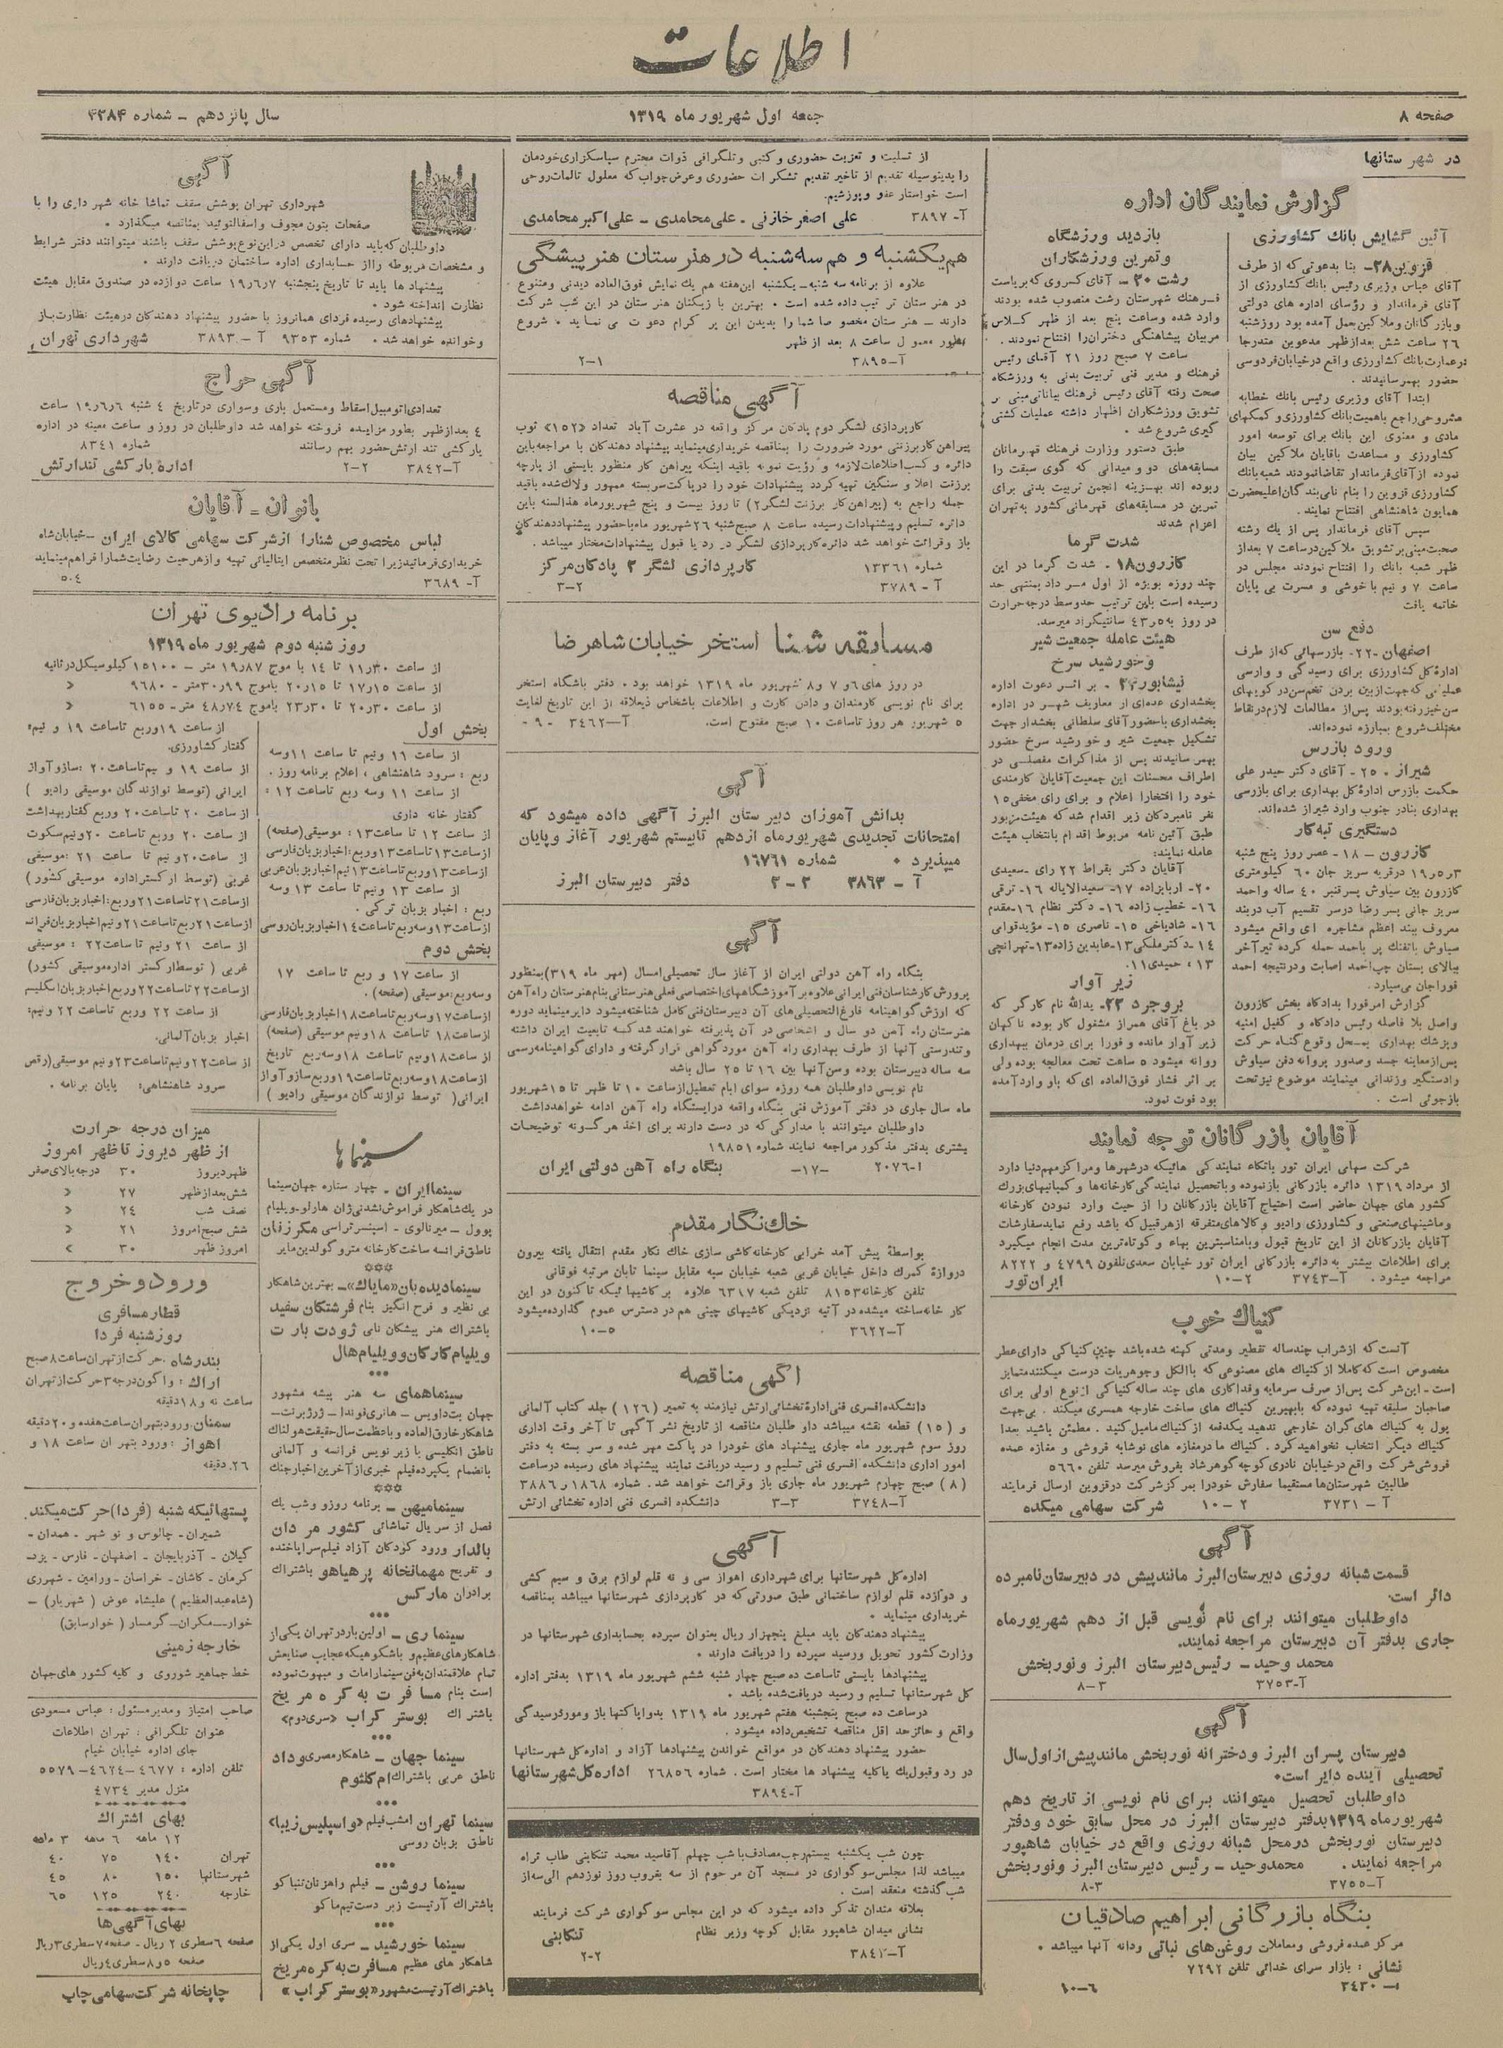 اطلاعات
صفحه ۸
جمعه اول شهریور ماه ۱۳۱۹
سال پانزدهم - شماره ۴۲۸۴
در شهرستانها
گزارش نمایندگان اداره
آئین گشایش بانک کشاورزی
قزوین ۲۸- بنا بدعوتی که از طرف
آقای عباس وزیری رئیس بانک کشاورزی از
آقای فرماندار و رؤسای اداره های دولتی
و بازرگانان و ملاکین بعمل آمده بود روزشنبه
۲۶ ساعت شش بعدازظهر مدعوین متدرجا
در عمارت بانک کشاورزی واقع درخیابان فردوسی
حضور بهمرسانیدند.
ابتدا آقای وزیری رئیس بانک خطابه
مشروحی راجع باهمیت بانک کشاورزی و کمکهای
مادی و معنوی این بانک برای توسعه امور
کشاورزی و مساعدت باقایان ملاکین بیان
نموده از آقای فرماندار تقاضا نمودند شعبه بانک
کشاورزی قزوین را بنام نامی بندگان اعلیحضرت
همایون شاهنشاهی افتتاح نمایند.
سپس آقای فرماندار پس از یک رشته
صحبت مبنی بر تشویق ملاکین درساعت ۷ بعداز
ظهر شعبه بانک را افتتاح نمودند مجلس در
ساعت ۷ و نیم باخوشی و مسرت بی پایان
خاتمه یافت
دفع سن
اصفهان -۲۲- بازرسهائی که از طرف
ادارۀ کل کشاورزی برای رسیدگی و وارسی
عملیاتی که جهت ازبین بردن تخم سن در کویهای
سن خیز رفته بودند پس از مطالعات لازم در نقاط
مختلف شروع بمبارزه نموده‌اند.
ورود بازرس
شیراز - ۲۵- آقای دکتر حیدر علی
حکمت بازرس ادارۀ کل بهداری برای بازرسی
بهداری بنادر جنوب وارد شیراز شده‌اند.
دستگیری تبه کار
کازرون - ۱۸- عصر روز پنج شنبه
۱۹ر۵ر۳ درقریه سریز جان ۶۰ کیلومتری
کازرون بین سیاوش پسر قنبر ۴۰ ساله واحمد
سریز جانی پسر رضا درسر تقسیم آب دربند
معروف ببند اعظم مشاجره ای واقع میشود
سیاوش باتفنگ پر باحمد حمله کرده تیر آخر
ببالای پستان چپ احمد اصابت ودر نتیجه احمد
فورا جان می سپارد.
گزارش امر فورا بدادگاه بخش کازرون
واصل بلا فاصله رئیس دادگاه و کفیل امنیه
وپزشک بهداری بمحل وقوع گناه حرکت
پس از معاینه جسد وصدور پروانه دفن سیاوش
رادستگیر وزندانی مینمایند موضوع نیز تحت
بازجوئی است.
بازدید ورزشگاه
وتمرین ورزشکاران
رشت ۲۰- آقای کسروی که بریاست
فرهنگ شهرستان رشت منصوب شده بودند
وارد شده وساعت پنج بعد از ظهر کلاس
مربیان پیشاهنگی دختران را افتتاح نمودند.
ساعت ۷ صبح روز ۲۱ آقای رئیس
فرهنگ و مدیر فنی تربیت بدنی به ورزشگاه
صحت رفته آقای رئیس فرهنگ بیاناتی مبنی بر
تشویق ورزشکاران اظهار داشته عملیات کشتی
گیری شروع شد.
طبق دستور وزارت فرهنگ قهرمانان
مسابقه های دو و میدانی که گوی سبقت را
ربوده اند بهزینه انجمن تربیت بدنی برای
تمرین در مسابقه های قهرمانی کشور به تهران
اعزام شدند
شدت گرما
کازرون ۱۸- شدت گرما در این
چند روزه بویژه از اول مرداد بمنتهی حد
رسیده است باین ترتیب حدوسط درجه حرارت
در روز به ۴۳ر۵ سانتیگراد میرسد.
هیئت عامله جمعیت شیر
وخورشید سرخ
بر اثر دعوت اداره
بخشداری عده‌ای از معاریف شهر در اداره
بخشداری باحضور آقای سلطانی بخشدار جهت
تشکیل جمعیت شیر و خورشید سرخ حضور
بهمرسانیدند پس از مذاکرات مفصلی در
اطراف محسنات این جمعیت آقایان کارمندی
خود را افتخارا اعلام و برای رای مخفی ۱۵
نفر نامبردگان زیر اقدام شد که هیئت مزبور
طبق آئین نامه مربوط اقدام بانتخاب هیئت
عامله نمایند:
آقایان دکتر بقراط ۲۲ رای - سعیدی
۲۰- اربابزاده ۱۷- سعیدالایاله ۱۶- ترقی
۱۶- خطیب زاده ۱۶- دکتر نظام ۱۶- مقدم
۱۶- شادیاخی ۱۵- ناصری ۱۵- مؤیدقوابی
۱۴- دکتر ملکی ۱۳- عابدین زاده ۱۳- تهرانچی
۱۳، حمیدی ۱۱.
زیر آوار
بروجرد ۲۲- یدالله نام کارگر که
در باغ آقای همراز مشغول کار بوده ناگهان
زیر آوار مانده و فورا برای درمان ببهداری
روانه میشود ۵ ساعت تحت معالجه بوده ولی
بر اثر فشار فوق العاده ای که باو وارد آمده
بود فوت نمود.
آقایان بازرگانان توجه نمایند
شرکت سهامی ایران تور باتکاء نمایندگی هائیکه درشهرها ومراکز مهم دنیا دارد
از مرداد ۱۳۱۹ دائره بازرگانی بازنموده وباتحصیل نمایندگی کارخانه‌ها و کمپانیهای بزرگ
کشور های جهان حاضر است احتیاج آقایان بازرگانان را از حیث وارد نمودن کارخانه
وماشینهای صنعتی و کشاورزی رادیو و کالاهای متفرقه ازهرقبیل که باشد رفع نماید سفارشات
آقایان بازرگانان از این تاریخ قبول و بامناسبترین بهاء و کوتاه‌ترین مدت انجام میگیرد
برای اطلاعات بیشتر به دائره بازرگانی ایران تور خیابان سعدی تلفون ۴۷۹۹ و ۸۲۲۲
مراجعه میشود. آ-۳۷۴۳ ۲-۱۰ ایران تور
کنیاک خوب
آنست که از شراب چندساله تقطیر ومدتی کهنه شده باشد چنین کنیاکی دارای عطر
مخصوص است که کاملا از کنیاک های مصنوعی که باالکل وجوهریات درست میکنند متمایز
است - این شرکت پس از صرف سرمایه وفداکاری های چند ساله کنیاکی از نوع اولی برای
صاحبان سلیقه تهیه نموده که بابهترین کنیاک های ساخت خارجه همسری میکند. بی جهت
پول به کنیاک های گران خارجی ندهید یکدفعه از کنیاک مامیل کنید. مطمئن باشید بعدا
کنیاک دیگر انتخاب نخواهید کرد. کنیاک ما درمغازه های نوشابه فروشی و مغازه عمده
فروشی شرکت واقع درخیابان نادری کوچه گوهرشاد بفروش میرسد تلفن ۵۶۶۰
طالبین شهرستانها مستقیما سفارش خودرا بمرکز شرکت درقزوین ارسال فرمایند
آ- ۳۷۳۱ ۲-۱۰ شرکت سهامی میکده
آگهی
قسمت شبانه روزی دبیرستان البرز مانند پیش در دبیرستان نامبرده
دائر است.
داوطلبان میتوانند برای نام نویسی قبل از دهم شهریور ماه
جاری بدفتر آن دبیرستان مراجعه نمایند.
محمد وحید - رئیس دبیرستان البرز و نوربخش
آ-۳۷۵۳ ۳-۸
آگهی
دبیرستان پسران البرز ودخترانه نوربخش مانند پیش از اول سال
تحصیلی آینده دایر است.
داوطلبان تحصیل میتوانند برای نام نویسی از تاریخ دهم
شهریور ماه ۱۳۱۹ بدفتر دبیرستان البرز در محل سابق خود و دفتر
دبیرستان نوربخش در محل شبانه روزی واقع در خیابان شاهپور
مراجعه نمایند. محمدوحید - رئیس دبیرستان البرز و نوربخش
آ-۳۷۵۵ ۳-۸
بنگاه بازرگانی ابراهیم صادقیان
مرکز عمده فروشی ومعاملات روغن های نباتی ودانه آنها میباشد.
نشانی: بازار سرای خدائی تلفن ۷۲۹۲
آ- ۳۴۳۰ ۶-۱۰
از تسلیت و تعزیت حضوری و کتبی و تلگرافی ذوات محترم سپاسگزاری خودمان
را بدینوسیله تقدیم از تاخیر تقدیم تشکرات حضوری و عرض جواب که معلول تالمات روحی
است خواستار عفو و پوزشیم.
آ- ۳۸۹۷ علی اصغر خازنی - علی محامدی - علی اکبر محامدی
هم یکشنبه و هم سه شنبه در هنرستان هنرپیشگی
علاوه از برنامه سه شنبه - یکشنبه این هفته هم یک نمایش فوق العاده دیدنی ومتنوع
در هنرستان ترتیب داده شده است. بهترین بازیکنان هنرستان در این شب شرکت
دارند - هنرستان مخصوصا شما را بدیدن این پرگرام دعوت می نماید. شروع
بطور معمول ساعت ۸ بعد از ظهر
آ-۳۸۹۵ ۱-۲
آگهی مناقصه
کارپردازی لشگر دوم پادگان مرکز واقعه در عشرت آباد تعداد (۱۵۲) توپ
پیراهن کار برزنتی مورد ضرورت را بمناقصه خریداری مینماید پیشنهاد دهندگان با مراجعه باین
دائره و کسب اطلاعات لازمه و رؤیت نمونه باقید اینکه پیراهن کار منظور بایستی از پارچه
برزنت اعلا و سنگین تهیه گردد پیشنهادات خود را درپاکت سربسته ممهور ولاک شده باقید
جمله راجع به (پیراهن کار برزنت لشگر۲) تا روز بیست و پنج شهریور ماه هذالسنه باین
دائره تسلیم و پیشنهادات رسیده ساعت ۸ صبح شنبه ۲۶ شهریور ماه باحضور پیشنهاد دهندگان
باز وقرائت خواهد شد دائره کارپردازی لشگر در رد یا قبول پیشنهادات مختار میباشد.
شماره ۱۳۳۶۱ کارپردازی لشگر ۲ پادگان مرکز
آ- ۳۷۸۹ ۲-۳
مسابقه شنا استخر خیابان شاهرضا
در روز های ۶ و ۷ و ۸ شهریور ماه ۱۳۱۹ خواهد بود. دفتر باشگاه استخر
برای نام نویسی کارمندان و دادن کارت و اطلاعات باشخاص ذیعلاقه از این تاریخ لغایت
۵ شهریور هر روز تاساعت ۱۰ صبح مفتوح است. آ-۳۴۶۲ -۹-
آگهی
بدانش آموزان دبیرستان البرز آگهی داده میشود که
امتحانات تجدیدی شهریور ماه ازدهم تابیستم شهریور آغاز وپایان
میپذیرد. شماره ۱۶۷۶۱
آ- ۳۸۶۳ ۲-۳ دفتر دبیرستان البرز
آگهی
بنگاه راه آهن دولتی ایران از آغاز سال تحصیلی امسال (مهر ماه ۳۱۹) بمنظور
پرورش کارشناسان فنی ایرانی علاوه بر آموزشگاههای اختصاصی فعلی هنرستانی بنام هنرستان راه آهن
که ارزش گواهینامه فارغ التحصیلی های آن دبیرستان فنی کامل شناخته میشود دایر مینماید دوره
هنرستان راه آهن دو سال و اشخاصی در آن پذیرفته خواهند شد که تابعیت ایران داشته
وتندرستی آنها از طرف بهداری راه آهن مورد گواهی قرار گرفته و دارای گواهینامه رسمی
سه ساله دبیرستان بوده وسن آنها بین ۱۶ تا ۲۵ سال باشد
نام نویسی داوطلبان همه روزه سوای ایام تعطیل از ساعت ۱۰ تا ظهر تا ۱۵ شهریور
ماه سال جاری در دفتر آموزش فنی بنگاه واقعه درایستگاه راه آهن ادامه خواهد داشت
داوطلبان میتوانند با مدارکی که در دست دارند برای اخذ هر گونه توضیحات
بیشتری بدفتر مذکور مراجعه نمایند شماره ۱۹۸۵۱
آ-۲۰۷۶ -۱۷- بنگاه راه آهن دولتی ایران
خاک نگار مقدم
بواسطۀ پیش آمد خرابی کارخانه کاشی سازی خاک نگار مقدم انتقال یافته بیرون
دروازۀ گمرک داخل خیابان غربی شعبه خیابان سپه مقابل سینما تابان مرتبه فوقانی
تلفن کارخانه ۸۱۵۳ تلفن شعبه ۶۳۱۷ علاوه بر کاشیها ئیکه تاکنون در این
کارخانه ساخته میشده در آتیه نزدیکی کاشیهای چینی هم در دسترس عموم گذارده میشود
آ-۳۶۲۲ ۵-۱۰
آگهی مناقصه
دانشکده افسری فنی ادارۀ تخشائی ارتش نیازمند به تعمیر (۱۲۶) جلد کتاب آلمانی
و (۱۵) قطعه نقشه میباشد داو طلبان مناقصه از تاریخ نشر آگهی تا آخر وقت اداری
روز سوم شهریور ماه جاری پیشنهاد های خودرا در پاکت مهر شده و سر بسته به دفتر
امور اداری دانشکده افسری فنی تسلیم و رسید دریافت نمایند پیشنهاد های رسیده درساعت
(۸) صبح چهارم شهریور ماه جاری باز وقرائت خواهد شد. شماره ۱۸۶۸ر۳۸۸۶
آ-۳۷۴۸ ۳-۳ دانشکده افسری فنی اداره تخشائی ارتش
آگهی
اداره کل شهرستانها برای شهرداری اهواز سی و نه قلم لوازم برق و سیم کشی
و دوازده قلم لوازم ساختمانی طبق صورتی که در کارپردازی شهرستانها میباشد بمناقصه
خریداری مینماید.
پیشنهاد دهندگان باید مبلغ پنجهزار ریال بعنوان سپرده بحسابداری شهرستانها در
وزارت کشور تحویل ورسید سپرده را دریافت دارند.
پیشنهادها بایستی تاساعت ده صبح چهار شنبه ششم شهریور ماه ۱۳۱۹ بدفتر اداره
کل شهرستانها تسلیم و رسید دریافت شده باشد.
درساعت ده صبح پنجشنبه هفتم شهریور ماه ۱۳۱۹ بدوا پاکتها باز وموردرسیدگی
واقع و حائز حد اقل مناقصه تشخیص داده میشود.
حضور پیشنهاد دهندگان در مواقع خواندن پیشنهادها آزاد و اداره کل شهرستانها
در رد وقبول یک یا کلیه پیشنهاد ها مختار است. شماره ۲۶۸۵۶ اداره کل شهرستانها
آ-۳۸۹۴
چون شب یکشنبه بیستم رجب مصادف با شب چهلم آقا سید محمد تنکابنی طاب ثراه
میباشد لذا مجلس سوگواری در مسجد آن مرحوم از سه بغروب روز نوزدهم الی سه از
شب گذشته منعقد است.
بعلاقه مندان تذکر داده میشود که در این مجلس سوگواری شرکت فرمایند
نشانی میدان شاهپور مقابل کوچه وزیر نظام تنکابنی
۲-۲
آگهی
شهرداری تهران پوشش سقف تماشا خانه شهرداری را با
صفحات بتون مجوف و اسفالتوئید بمناقصه میگذارد.
داوطلبان که باید دارای تخصص دراین نوع پوشش سقف باشند میتوانند دفتر شرایط
و مشخصات مربوطه را از حسابداری اداره ساختمان دریافت دارند.
پیشنهاد ها باید تا تاریخ پنجشنبه ۱۹ر۶ر۷ ساعت دوازده در صندوق مقابل هیئت
نظارت انداخته شود.
پیشنهادهای رسیده فردای همانروز با حضور پیشنهاد دهندگان درهیئت نظارت باز
وخوانده خواهد شد. شماره ۹۳۵۳ آ- ۳۸۹۳ شهرداری تهران
آگهی حراج
تعدادی اتومبیل اسقاط ومستعمل باری وسواری درتاریخ ۴ شنبه ۱۹ر۶ر۶ ساعت
۴ بعدازظهر بطور مزایده فروخته خواهد شد داوطلبان در روز و ساعت معینه در اداره
بارکشی تند ارتش حضور بهم رسانند شماره ۸۳۴۱
آ-۳۸۴۲ ۲-۲ اداره بارکشی تندارتش
بانوان - آقایان
لباس مخصوص شنارا از شرکت سهامی کالای ایران - خیابان شاه
خریداری فرمائید زیرا تحت نظر متخصص ایتالیائی تهیه و ازهرحیث رضایت شمارا فراهم مینماید
آ- ۳۶۸۹ ۴-۵
برنامه رادیوی تهران
روز شنبه دوم شهریور ماه ۱۳۱۹
از ساعت ۳۰ر۱۱ تا ۱۴ با موج ۸۷ر۱۹ متر - ۱۵۱۰۰ کیلوسیکل در ثانیه
از ساعت ۱۵ر۱۷ تا ۱۵ر۲۰ باموج ۹۹ر۳۰ متر - ۹۶۸۰ »
از ساعت ۳۰ر۲۰ تا ۳۰ر۲۳ باموج ۷۴ر۴۸ متر - ۶۱۵۵ »
بخش اول
از ساعت ۱۱ ونیم تا ساعت ۱۱ وسه
ربع: سرود شاهنشاهی، اعلام برنامه روز.
از ساعت ۱۱ وسه ربع تا ساعت ۱۲:
گفتار خانه داری
از ساعت ۱۲ تا ساعت ۱۳: موسیقی (صفحه)
از ساعت ۱۳ تا ساعت ۱۳ وربع: اخبار بزبان فارسی
از ساعت ۱۳ وربع تا ساعت ۱۳ نیم اخبار بزبان عربی
از ساعت ۱۳ ونیم تا ساعت ۱۳ وسه
ربع: اخبار بزبان ترکی.
از ساعت ۱۳ وسه ربع تا ساعت ۱۴ اخبار بزبان روسی
بخش دوم
از ساعت ۱۷ و ربع تا ساعت ۱۷
وسه ربع: موسیقی (صفحه).
از ساعت ۱۷ وسه ربع تا ساعت ۱۸ اخبار بزبان فارسی
از ساعت ۱۸ تا ساعت ۱۸ ونیم موسیقی (صفحه)
از ساعت ۱۸ ونیم تا ساعت ۱۸ وسه ربع تاریخ
از ساعت ۱۸ وسه ربع تا ساعت ۱۹ وربع ساز وآواز
ایرانی (توسط نوازندگان موسیقی رادیو)
از ساعت ۱۹ وربع تا ساعت ۱۹ و نیم:
گفتار کشاورزی.
از ساعت ۱۹ و نیم تا ساعت ۲۰: ساز و آواز
ایرانی (توسط نوازندگان موسیقی رادیو)
از ساعت ۲۰ تا ساعت ۲۰ وربع گفتار بهداشت
از ساعت ۲۰ وربع تا ساعت ۲۰ ونیم سکوت
از ساعت ۲۰ و نیم تا ساعت ۲۱: موسیقی
غربی (توسط ارکستر اداره موسیقی کشور)
از ساعت ۲۱ تا ساعت ۲۱ وربع: اخبار بزبان فارسی
از ساعت ۲۱ وربع تا ساعت ۲۱ ونیم اخبار بزبان فرانسه
از ساعت ۲۱ ونیم تا ساعت ۲۲: موسیقی
غربی (توسط ارکستر اداره موسیقی کشور)
از ساعت ۲۲ تا ساعت ۲۲ وربع اخبار بزبان انگلیسی
از ساعت ۲۲ وربع تا ساعت ۲۲ ونیم:
اخبار بزبان آلمانی.
از ساعت ۲۲ ونیم تا ساعت ۲۳ ونیم موسیقی (رقص
سرود شاهنشاهی: پایان برنامه.
سینماها
سینما ایران - چهار ستاره جهان سینما
در یک شاهکار فراموش نشدنی ژان هارلو - ویلیام
پوول - میرنالوی - اسپنسر تراسی مکر زنان
ناطق فرانسه ساخت کارخانه مترو گولدین مایر
***
سینما دیده بان «مایاک» - بهترین شاهکار
بی نظیر و فرح انگیز بنام فرشتگان سفید
باشتراک هنر پیشگان نامی ژودت بارت
ویلیام کارگان و ویلیام هال
***
سینما همای - سه هنر پیشه مشهور
جهان بت داویس - هانری فوندا - ژرژ برنت -
شاهکار خارق العاده و باعظمت سال حقیقت هولناک
ناطق انگلیسی با زیر نویس فرانسه و آلمانی
بانضمام یک پرده فیلم خبری از آخرین اخبار جنگ
***
سینما میهن - برنامه روز و شب یک
فصل از سریال تماشائی کشور مردان
بالدار ورود کودکان آزاد فیلم سراپا خنده
و تفریح مهمانخانه پر هیاهو باشتراک
برادران مارکس
***
سینما ری - اولین بار در تهران یکی از
شاهکارهای عظیم و باشکوهی که عجایب صنایعش
تمام علاقمندان به فن سینما را مات و مبهوت نموده
است بنام مسافرت به کره مریخ
باشتراک بوستر کراب (سری دوم)
***
سینما جهان - شاهکار مصری وداد
ناطق عربی باشتراک ام کلثوم
***
سینما تهران امشب فیلم (واسیلیس زیبا)
ناطق بزبان روسی
***
سینما روشن - فیلم راهزنان تنباکو
باشتراک آرتیست زبر دست تیم ماکو
***
سینما خورشید - سری اول یکی از
شاهکار های عظیم مسافرت به کره مریخ
باشتراک آرتیست مشهور «بوستر کراب»
میزان درجه حرارت
از ظهر دیروز تاظهر امروز
ظهر دیروز ۳۰ درجه بالای صفر
شش بعدازظهر ۲۷ »
نصف شب ۲۴ »
شش صبح امروز ۲۱ »
امروز ظهر ۳۰ »
ورود و خروج
قطار مسافری
روز شنبه فردا
بندر شاه. حرکت از تهران ساعت ۸ صبح
اراک: واگون درجه ۳ حرکت از تهران
ساعت نه و ۱۸ دقیقه
سمنان. ورود بتهران ساعت هفده و ۲۰ دقیقه
اهواز: ورود بتهران ساعت ۱۸ و
۲۶ دقیقه
پستهائیکه شنبه (فردا) حرکت میکند
شمیران - چالوس و نو شهر - همدان -
گیلان - آذربایجان - اصفهان - فارس - یزد-
کرمان - کاشان - خراسان - ورامین - شهرری
(شاه عبدالعظیم) علیشاه عوض (شهریار) -
خوار - مکران - گرمسار (خوار سابق)
خارجه زمینی
خط جماهیر شوروی و کلیه کشور های جهان
صاحب امتیاز ومدیر مسئول: عباس مسعودی
عنوان تلگرافی: تهران اطلاعات
جای اداره خیابان خیام
تلفن اداره: ۴۶۷۷-۴۶۲۴-۵۵۷۹
منزل مدیر ۴۷۳۴
بهای اشتراک
۱۲ ماهه ۶ ماهه ۳ ماهه
تهران ۱۴۰ ۷۵ ۴۰
شهرستانها ۱۵۰ ۸۰ ۴۵
خارجه ۲۴۰ ۱۲۵ ۶۵
بهای آگهی ها
صفحه ۶ سطری ۲ ریال - صفحه ۷ سطری ۳ ریال
صفحه ۵ و ۸ سطری ۴ ریال
چاپخانه شرکت سهامی چاپ